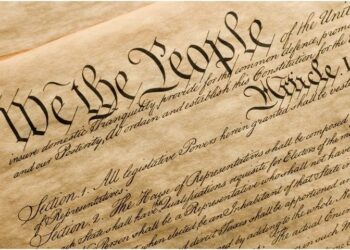 We the People of the Unit
insure domestic Tranquility, provide for the common defence, promo
and our Posterity, do ordain and establish this Constitution for the
Article. I.
Section. 1. All legislative Powers herein granted shall be vested
of Representatives.
Section. 2. The House of Representatives shall be composed
in each State shall have Qualifications requisite for Electors of the m
No Person shall be a Representative who shall not have
when elected, be an Inhabitant of that State in